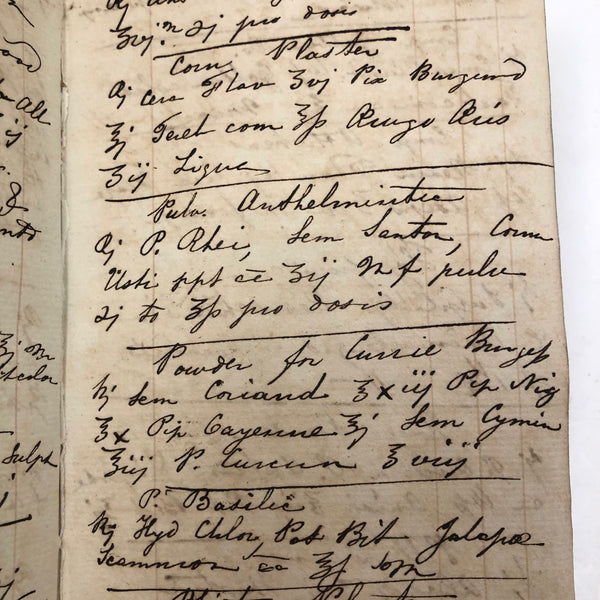 ʒvj. ℈j pro dosis
Corn Plaster
℞ Cera Flav ʒvj Pix Burgund
ʒj Tereb com ʒſs Arugo Aris
ʒij Ligua
Pulv. Anthelmintic
℞ P. Rhei, Sem Santon, Cornu
Usti ppt āā ʒij M f pulv
℈j to ʒſs pro dosis
Powder for Currie Burgess
℞ Sem Coriand ʒxiij Pip Nig
ʒx Pip Cayenne ʒj Sem Cymin
ʒiij P. Curcum ʒviij
P. Basilic
℞ Hyd Chlor, Pot Bit Jalapæ
Scammon āā ʒſs
Plaster
All
ij
&
Sulph